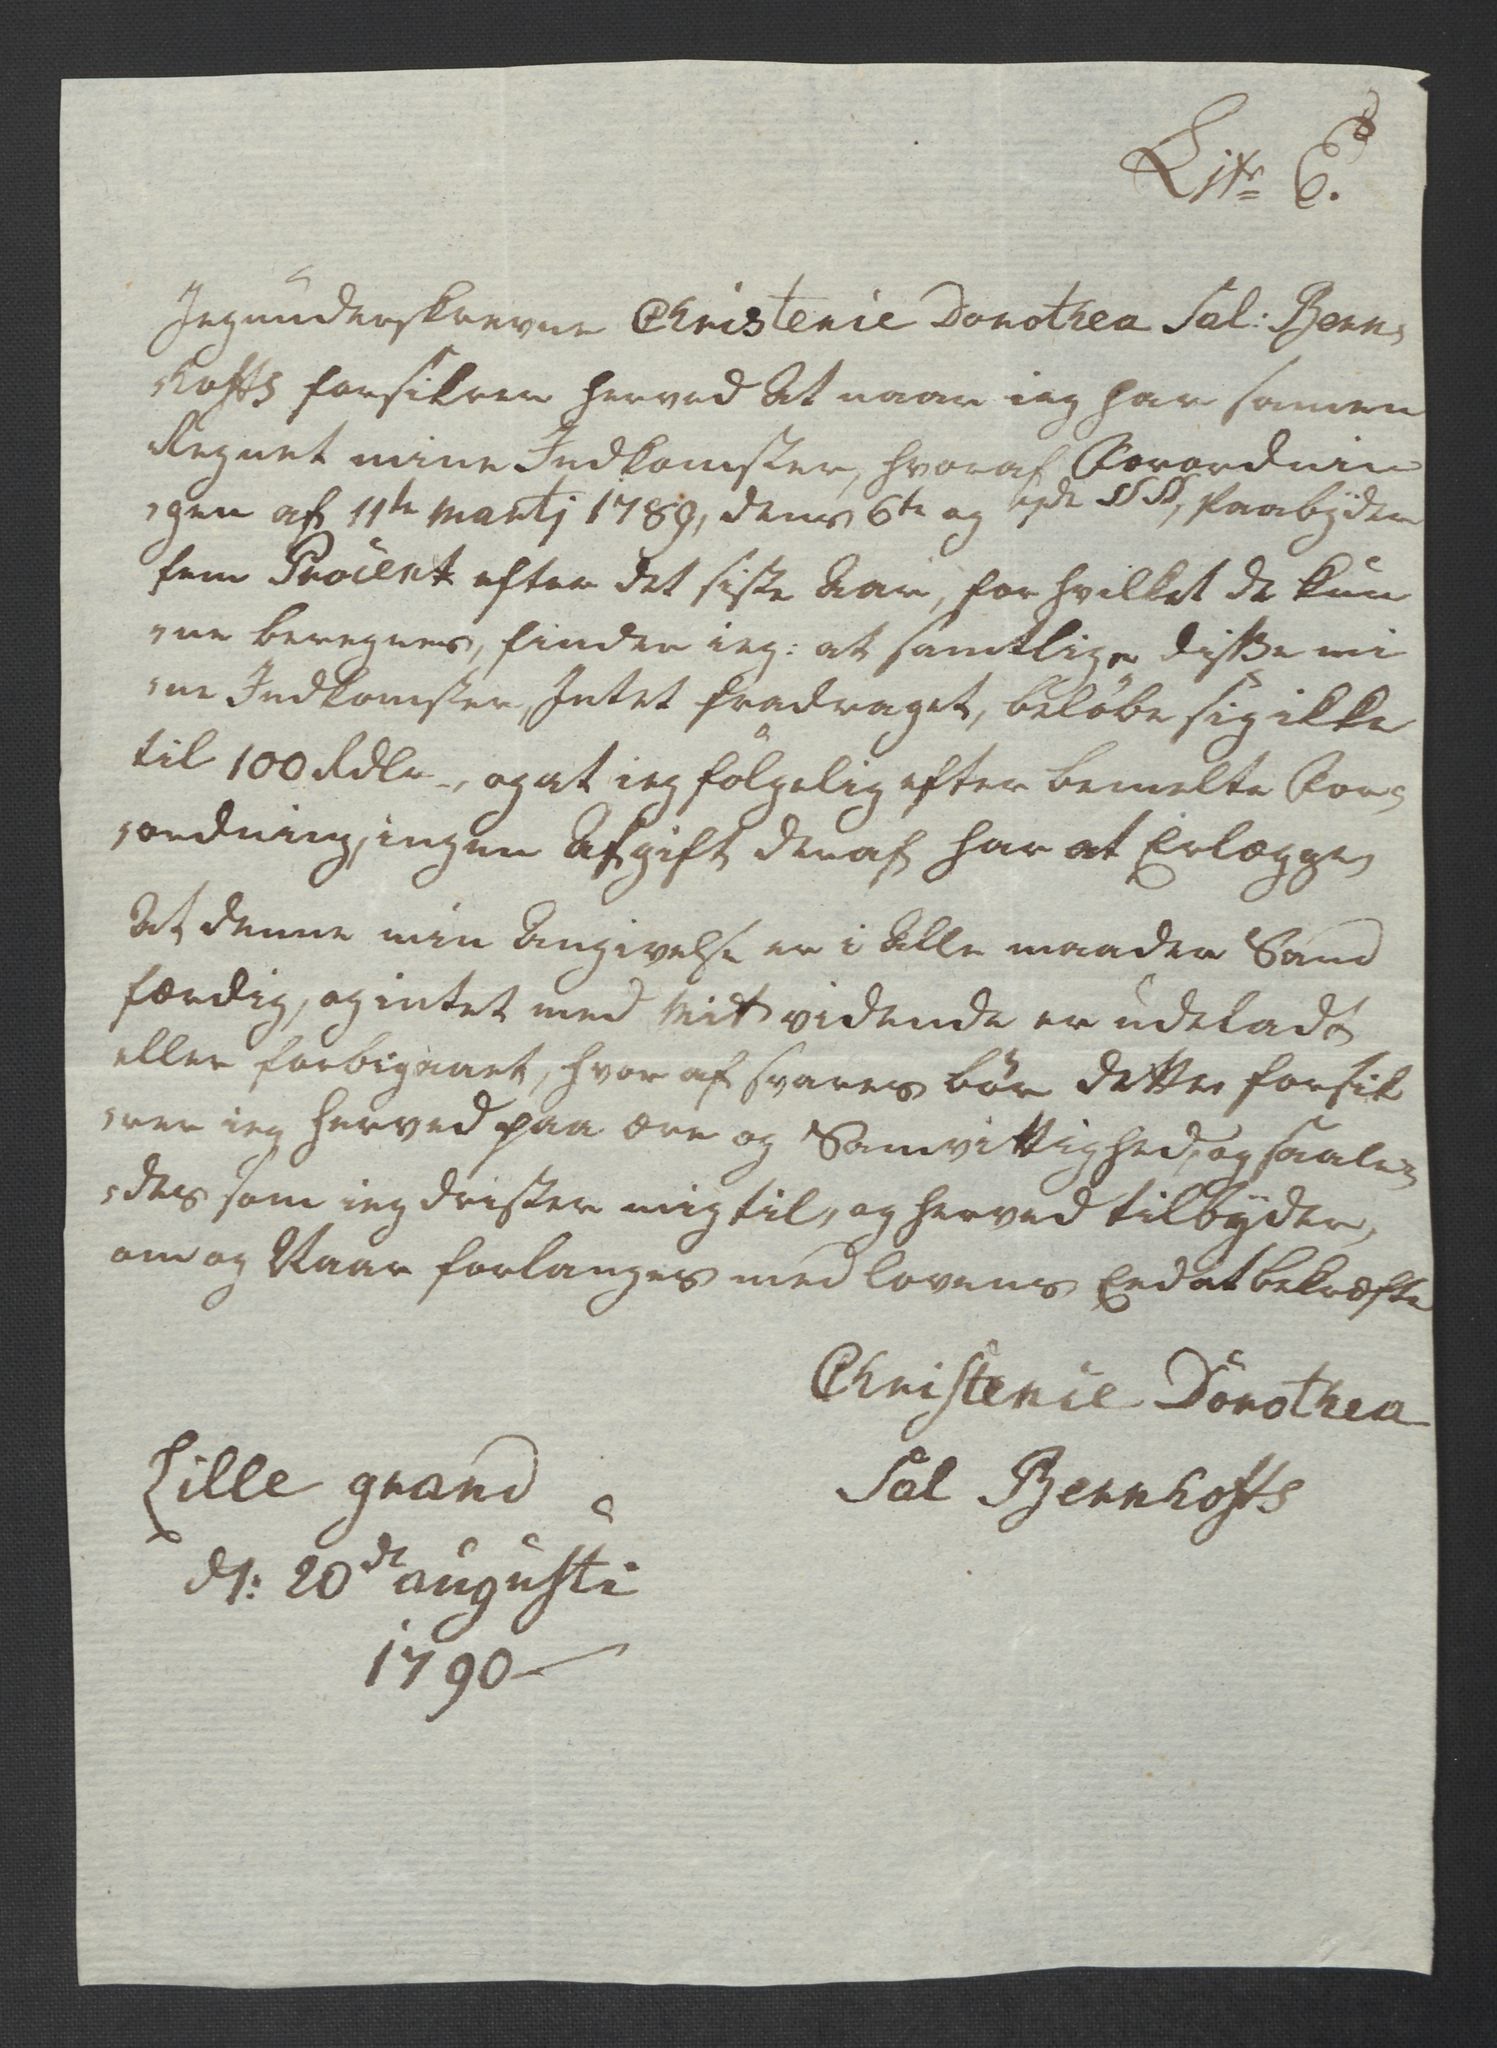 Litr E.
Jeg underskrevne Christenie Dorothea Sal: Bern-
-hofts forsikrer herved At naar ieg har samen
Regnet mine Indkomster, hvoraf Forordnin
-gen af 11te Martij 1789, dens 6te og §§, Paabÿder
fem Procent efter det siste Aar, for hvilket de kun
-ne beregnes, finder ieg: at samtlige disse mi
-ne Indkomster, Intet fradraget, beløbe sig ikke
til 100 Rdlr, og at ieg følgelig efter bemelte For-
-ordning, ingen Afgift deraf har at Erlægge,
At denne min Angivelse er i Alle maader Sand
færdig, og intet med Mit vidende er udeladt
eller forbigaaet, hvor af svares bör dette forsik
-rer ieg herved paa ære og Samvittighed, og saale-
-des som ieg drister mig til, og herved tilbÿder,
om og Naar forlanges med lovens Eed at bekræfte
Christenie Dorothea
Sal Bernhofts
Lille grand
d: 20de augusti
1790